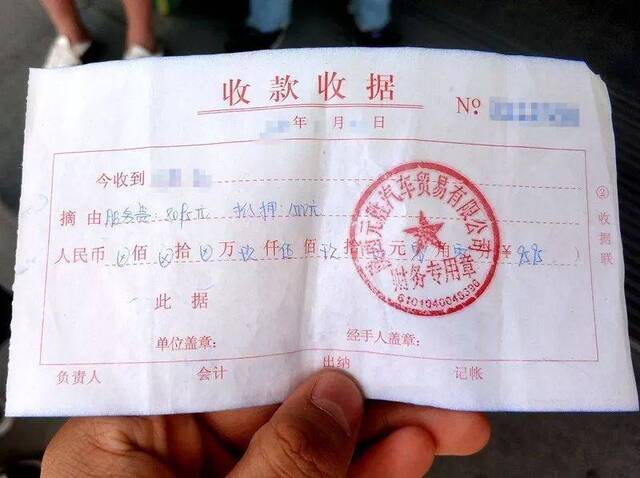 收款收据
№
年 月 日
今收到
摘由 服务费:8095元 抵押:1500元
人民币 佰 拾 万 玖仟伍佰玖拾 元 角 分 ¥ 9595
此据
单位盖章: 经手人盖章:
负责人 会计 出纳 记帐
② 收据联
元胜汽车贸易有限公司
财务专用章
6101040040390